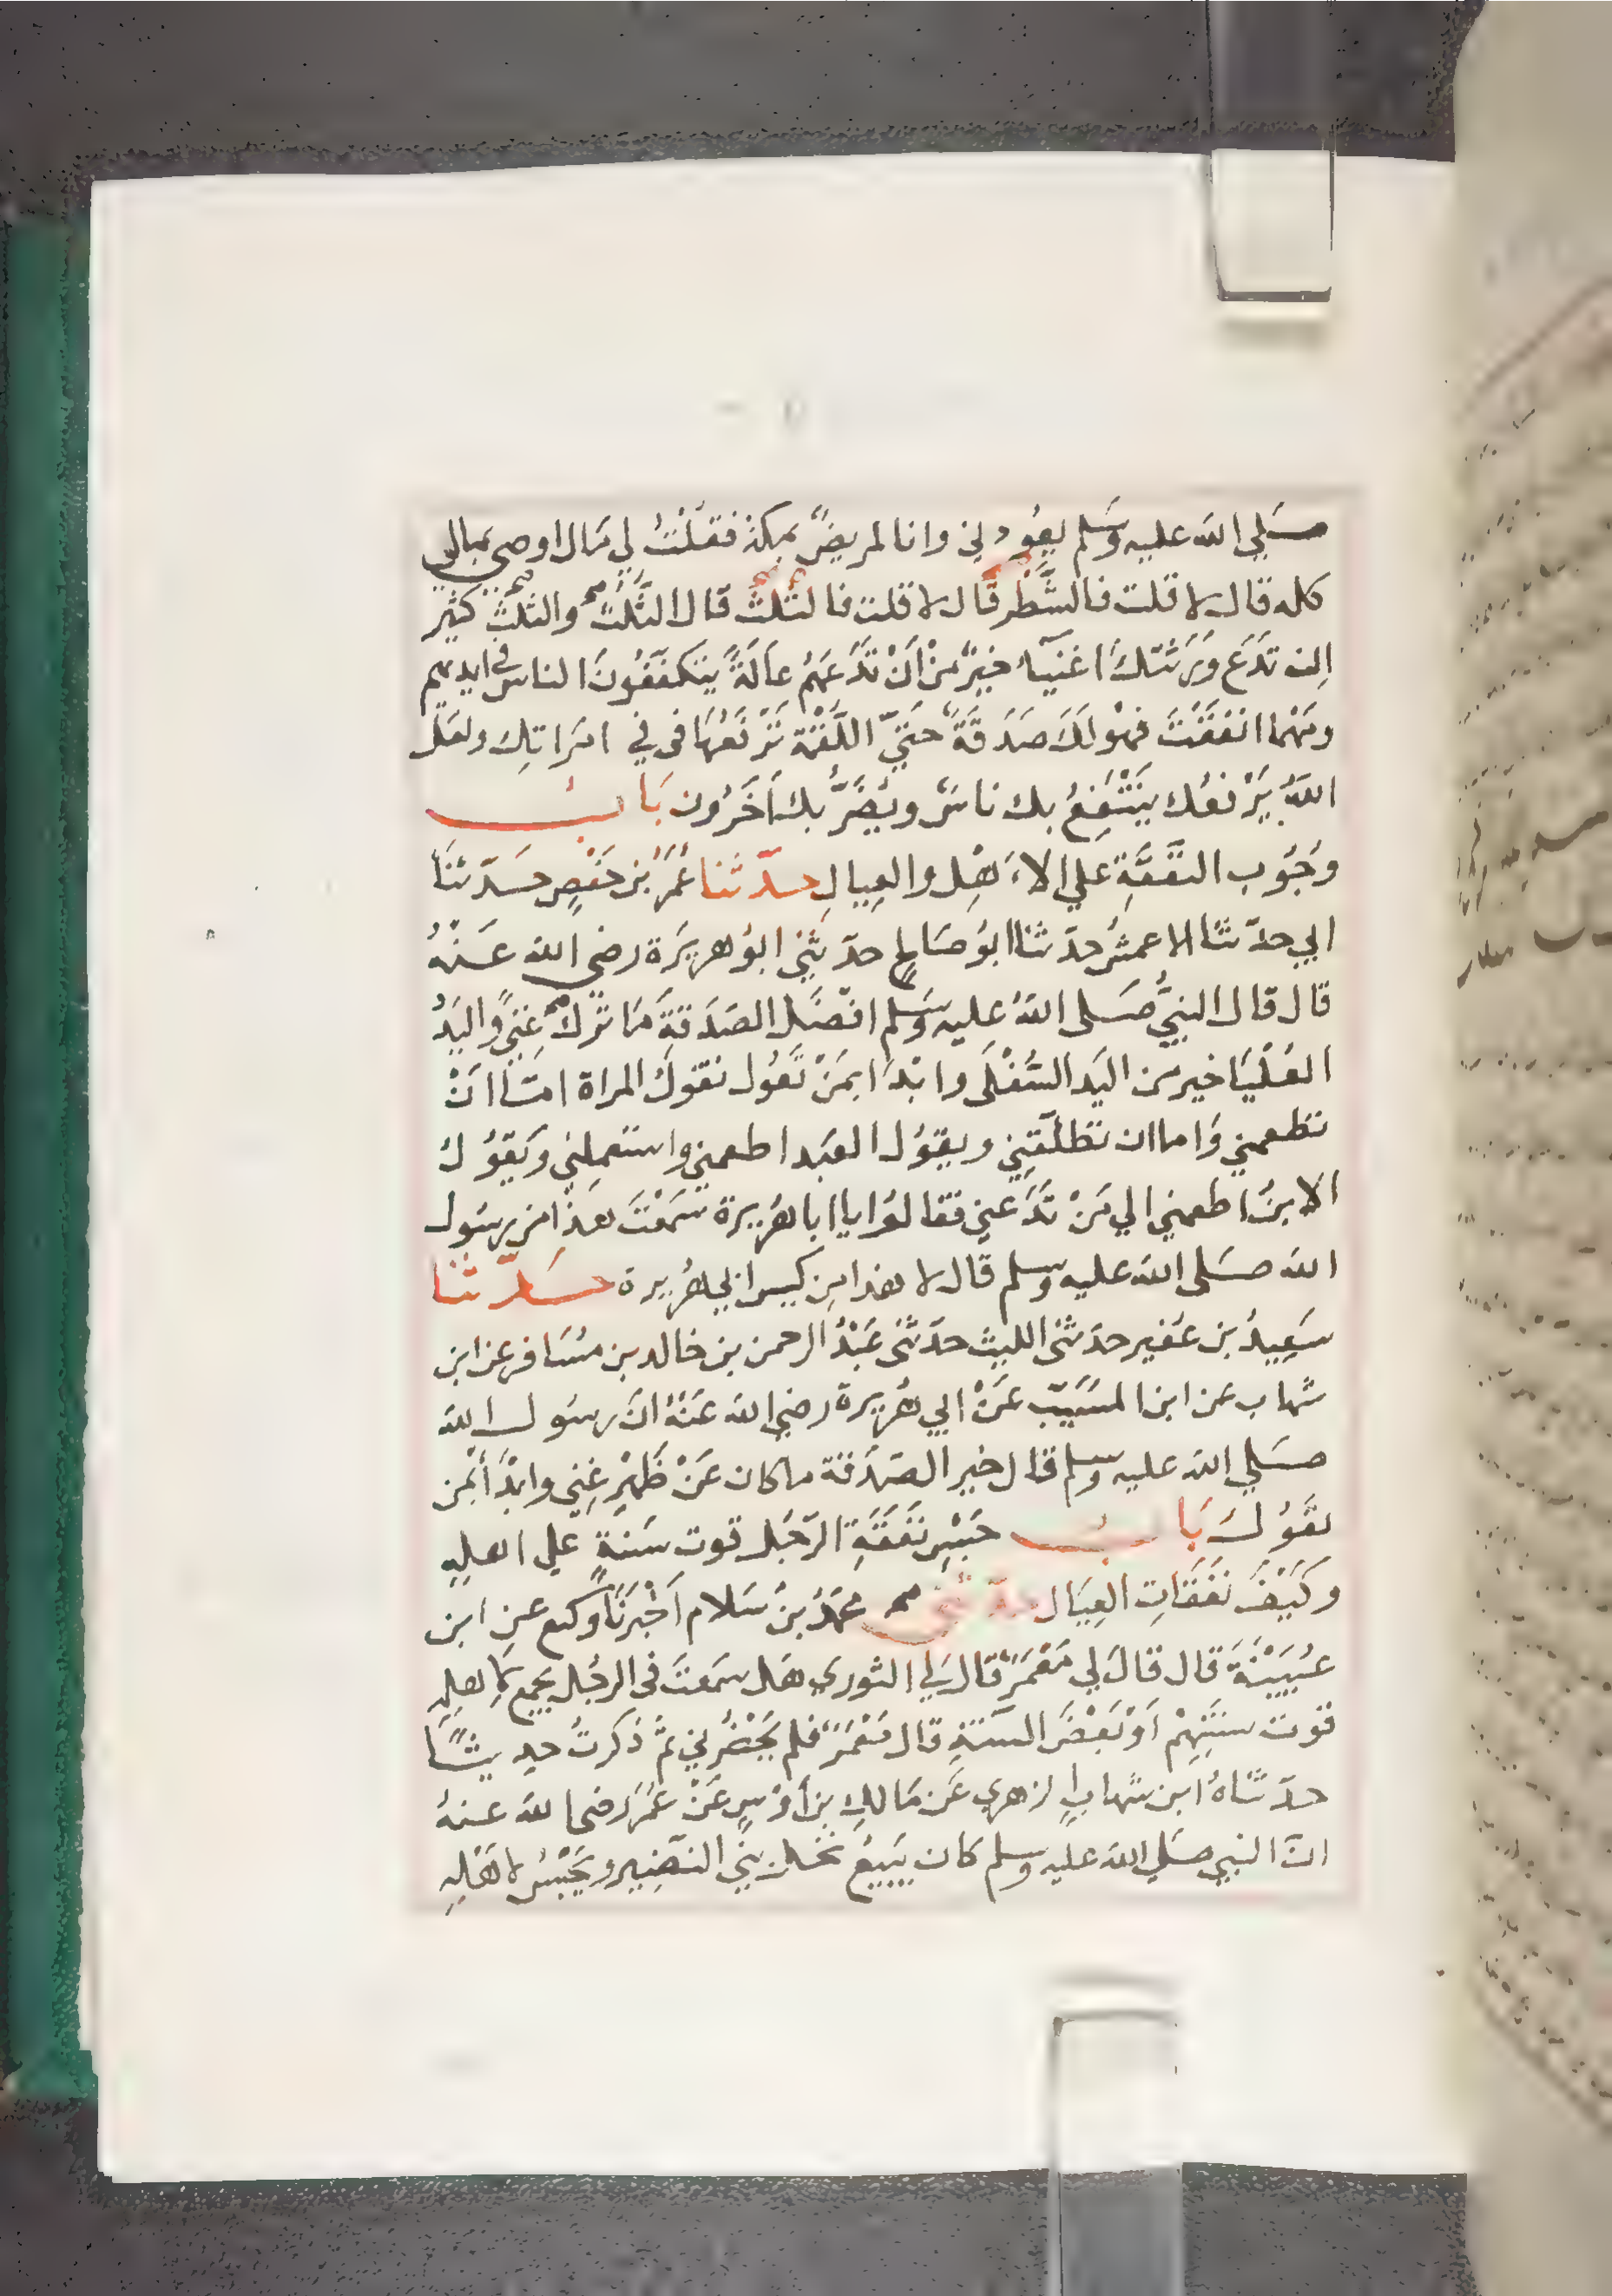 صَلي الله عليه وسَلم يعُودني وانا مريضٌ بمكة فقلْتُ لي مَال اوصي بمالي
كله قال لا قلت فالشَّطْر قال لا قلت فالثلثُ قال الثُّلُثُ والثلُثُ كثير
اِن تدَعَ وَرَثتكَ اغنيآء خيرٌ مِنْ اَنْ تَدَعَهُم عَالَةً يتكففُونَ الناس في ايديهم
ومَهْما انفَقْتَ فهْو لَكَ صَدَقَةٌ حَتيّ اللّقْمَة تَرْفَعُهَا في في امرَاتِك ولعَل
اللهَ يَرْفعُك يَنْتَفِعُ بك ناسٌ ويُضَرُّ بك اَخَرُون بَابُ
وجُوب النفَقَةِ علي الاَهْل والعِيالِ حدّثنا عُمَرُ بْن حَفْصٍ حَدّثنَا
ابي حدّثنَا الاعمشُ حدثنا ابوُ صَالحٍ حدثني ابوُ هريرَة رضي الله عَنْهُ
قال قال النبيُّ صَلى اللهُ عليه وسَلم افْضَل الصَدَقَةِ مَا ترَكَ غِنيً واليَدُ
العُلْيَا خير من اليَد السُّفْلَى وابْدَا بِمَنْ تَعُول تقوُلُ المراة امّا اَنْ
تطعمني وَاما ان تطلّقَنِي ويقوُل العَبد اطعمني واستعمِلني وَيَقوُلُ
الابنُ اطعمني الي مَنْ تَدَعني فقالوُا يا ابا هرُيرة سَمعْتَ هَذا من رسَول
الله صَلى الله عليه وسلم قال لا هذا مِن كيس ابي هُريرة حَدّثنا
سَعِيدُ بن عفَير حدَثنى الليث حدَثنى عَبْدُ الرحمن بن خالد بن مسَافر عن ابن
شهاب عن ابن المسَيّب عَنْ ابي هُريرة رضي الله عَنْهُ انَ رسوُل الله
صَلي الله عليه وسلم قال خير الصَدَقة ما كان عَنْ ظَهْرِ غِنيً وابْدَأ بمن
تَعوُل بَابُ حَبْسِ نفَقَةِ الرّجُل قوت سَنةٍ علي اهلِهِ
وكَيْفَ نفَقَاتِ العِيَال حدّثني محمّدُ بنُ سَلام اَخْبَرَنَا وكيع عن ابن
عُيَيْنَةَ قال قال لي مَعْمَرٌ قال لي الثوري هَل سَمعْتَ فى الرجُل يجمع لاِهلِهِ
قوت سَنَتِهِمْ اَوْ بَعْضَ السّنَةِ قال مَعْمَرٌ فلم يَحْضُرْني ثمُّ ذكرتُ حديثًا
حدّثنَاهُ ابن شهاب الزهري عَن مَالكِ بن أوْسٍ عَنْ عُمَرَ رضى الله عنهُ
انّ النبي صَلي الله عليه وسلم كان يَبيعُ نخل بَني النضِير ويَحْبسُ لاَهْلِهِ